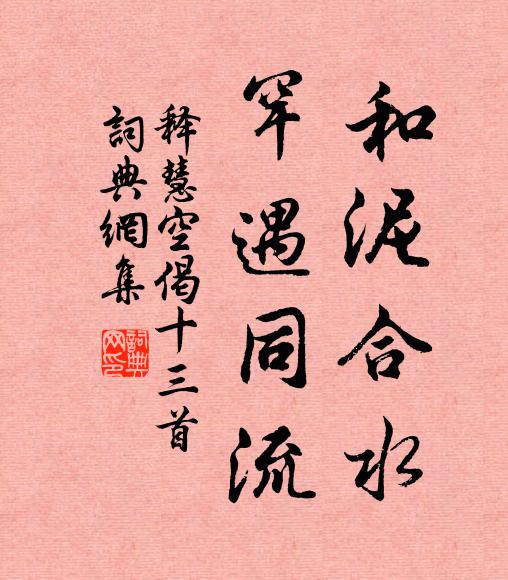 和泥合水
罕遇同流
释慧空偈十三首
詞典網集
詞典網印